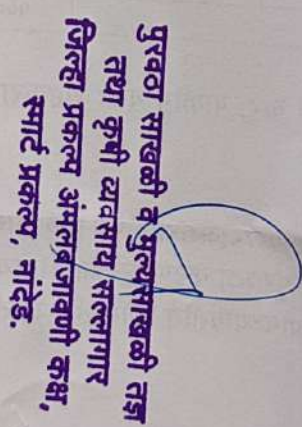 पुरवठा साखळी व मुल्यसाखळी तज्ञ
तथा कृषी व्यवसाय सल्लागार
जिल्हा प्रकल्प अंमलबजावणी कक्ष,
स्मार्ट प्रकल्प, नांदेड.